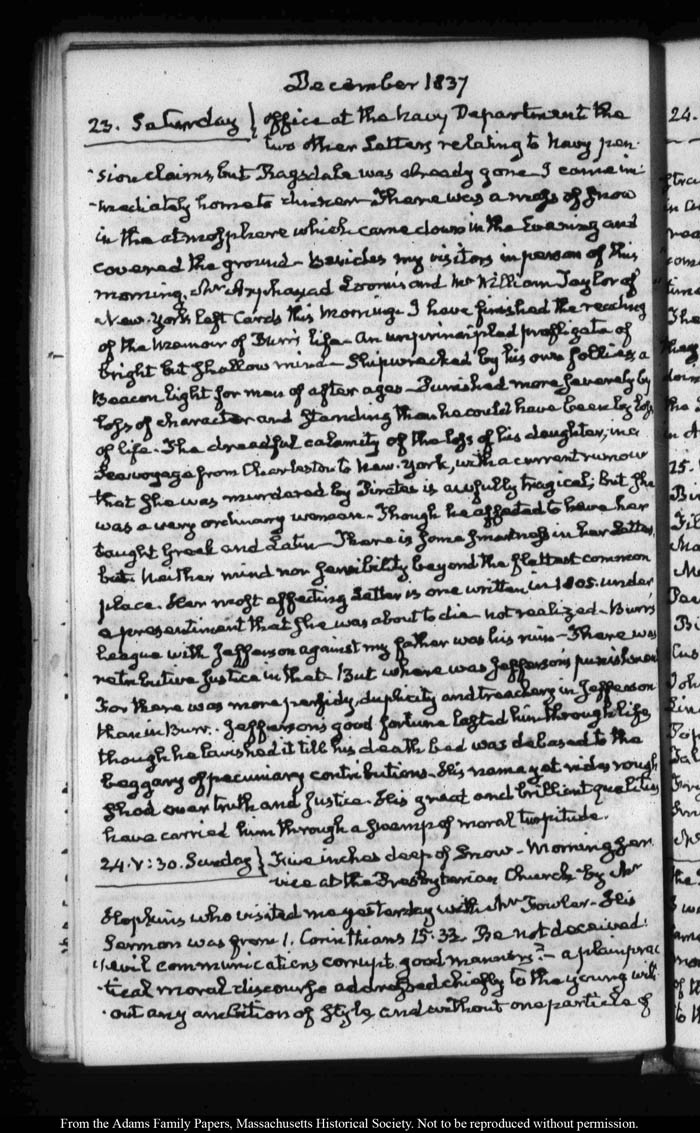 December 1837
23. Saturday } office at the Navy Department the
two other Letters relating to Navy pen-
-sion claims, but Ragsdale was already gone. I came im-
-mediately home to dinner. There was a mass of Snow
in the atmosphere which came down in the Evening and
covered the ground. Besides my visitors in person of this
morning, Mr Arphaxad Loomis and Mr William Taylor of
New-York left Cards this Morning. I have finished the reading
of the Memoir of Burr's life. An unprincipled profligate of
bright but shallow mind. Shipwrecked by his own follies, a
Beacon light for men of after ages. Punished more severely by
loss of character and standing than he could have been by loss
of life. The dreadful calamity of the loss of his daughter, in a
Sea voyage from Charleston to New-York, with a current rumour
that she was murdered by Pirates is awfully tragical; but she
was a very ordinary woman. Though he affected to have her
taught Greek and Latin. There is some smartness in her Letters,
but neither mind nor sensibility beyond the flattest common
place. Her most affecting Letter is one written in 1805. under
a presentiment that she was about to die not realized. Burr's
league with Jefferson against my father was his ruin. There was
retributive Justice in that. But where was Jefferson's punishment
For there was more perfidy, duplicity and treachery in Jefferson
than in Burr. Jefferson's good fortune lasted him through life
though he lavished it till his death bed was debased to the
beggary of pecuniary contributions. His name yet rides rough
shod over truth and Justice. His great and brilliant qualities
have carried him through a swamp of moral turpitude.
24. V: 30. Sunday } Five inches deep of Snow. Morning ser-
-vice at the Presbyterian Church by Mr
Hopkins who visited me yesterday with Mr Fowler. His
Sermon was from 1. Corinthians 15:33. Be not deceived:
evil communications corrupt good manners. a plain prac
-tical moral discourse addressed chiefly to the young with-
-out any ambition of Style, and without one particle of
24.
25.
From the Adams Family Papers, Massachusetts Historical Society. Not to be reproduced without permission.